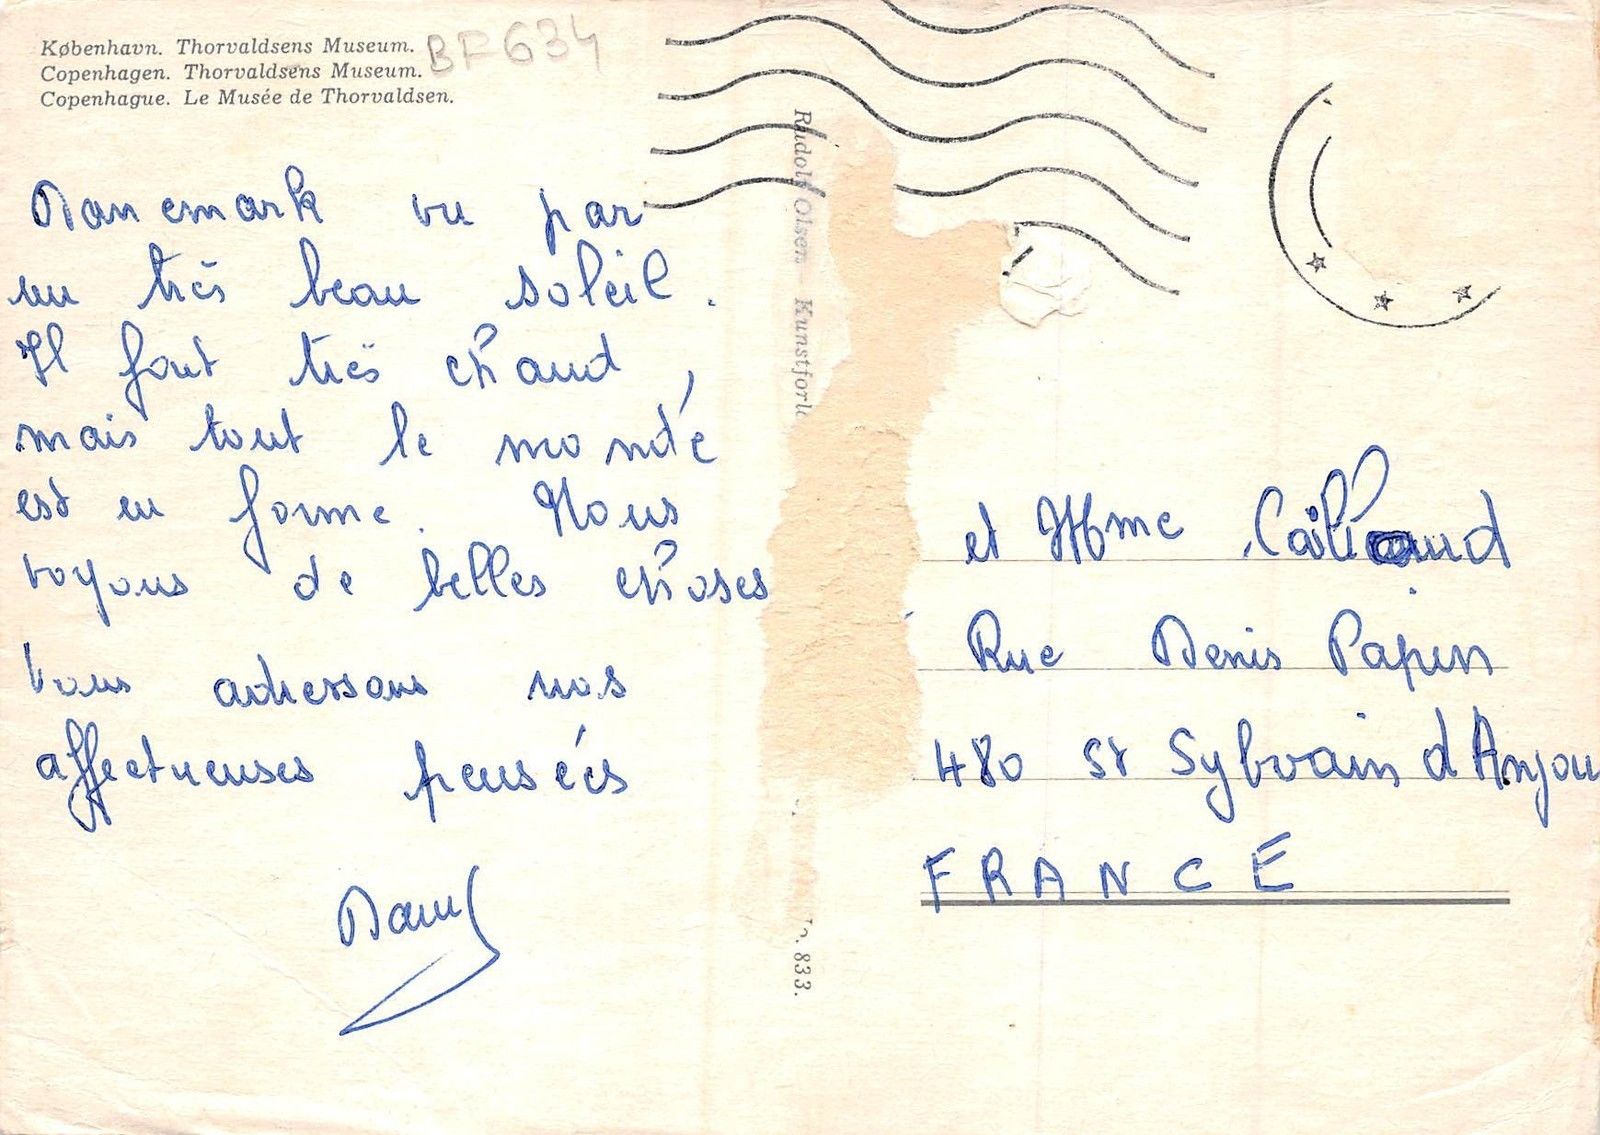 København. Thorvaldsens Museum.
Copenhagen. Thorvaldsens Museum.
Copenhague. Le Musée de Thorvaldsen.
BF634
Danemark vu par
un très beau soleil.
Il fait très chaud,
mais tout le monde
est en forme. Nous
voyons de belles choses
Vous adressons nos
affectueuses pensées
Rudolf Olsens Kunstforla
833.
et Mme
Rue Denis Papin
480 St Sylvain d'Anjou
FRANCE